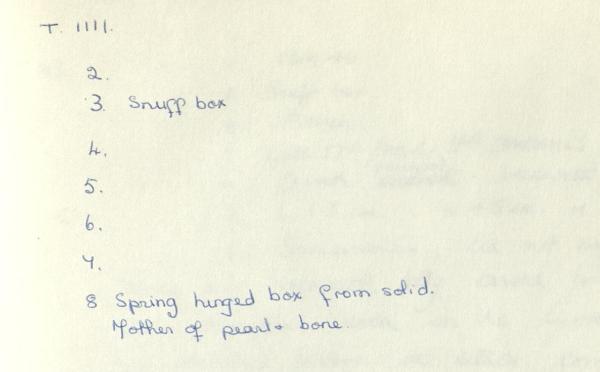 T. 1111.
2.
3. Snuff box
4.
5.
6.
7.
8 Spring hinged box from solid.
Mother of pearl + bone.